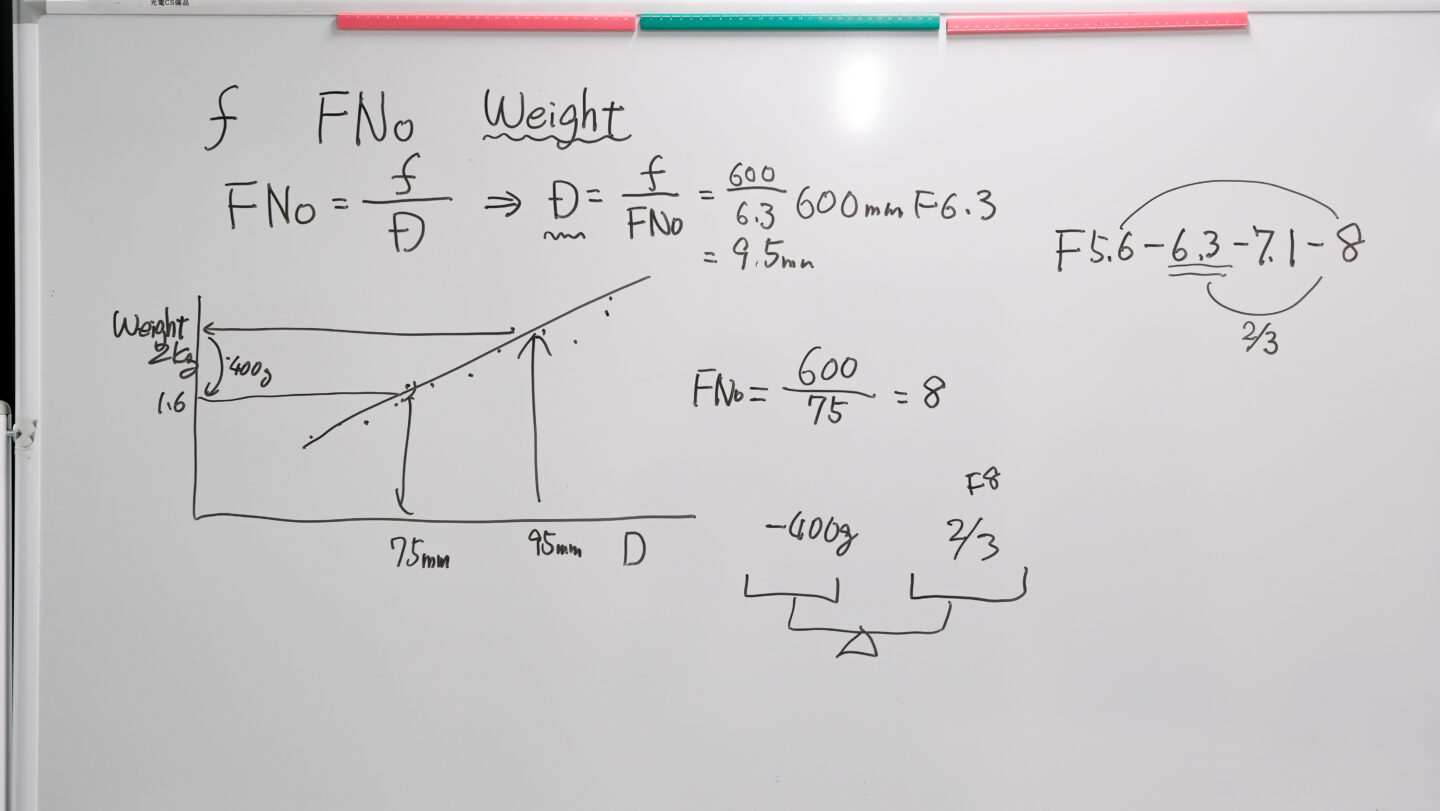 光電CS備品
f FNo Weight
FNo = f/D ⇒ D = f/FNo = 600/6.3 600mm F6.3
= 9.5mm
F5.6-6.3-7.1-8
2/3
Weight
2kg
-400g
1.6
75mm 95mm D
FNo = 600/75 = 8
F8
-400g 2/3